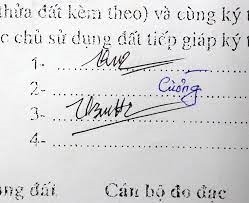 thửa đất kèm theo) và cùng ký t
c chủ sử dụng đất tiếp giáp ký t
1-
2- Cường
3-
4-
ng đất Cán bộ đo đạc